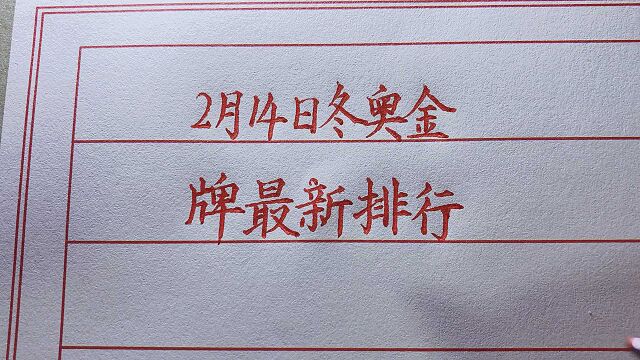 2月14日冬奥金
牌最新排行